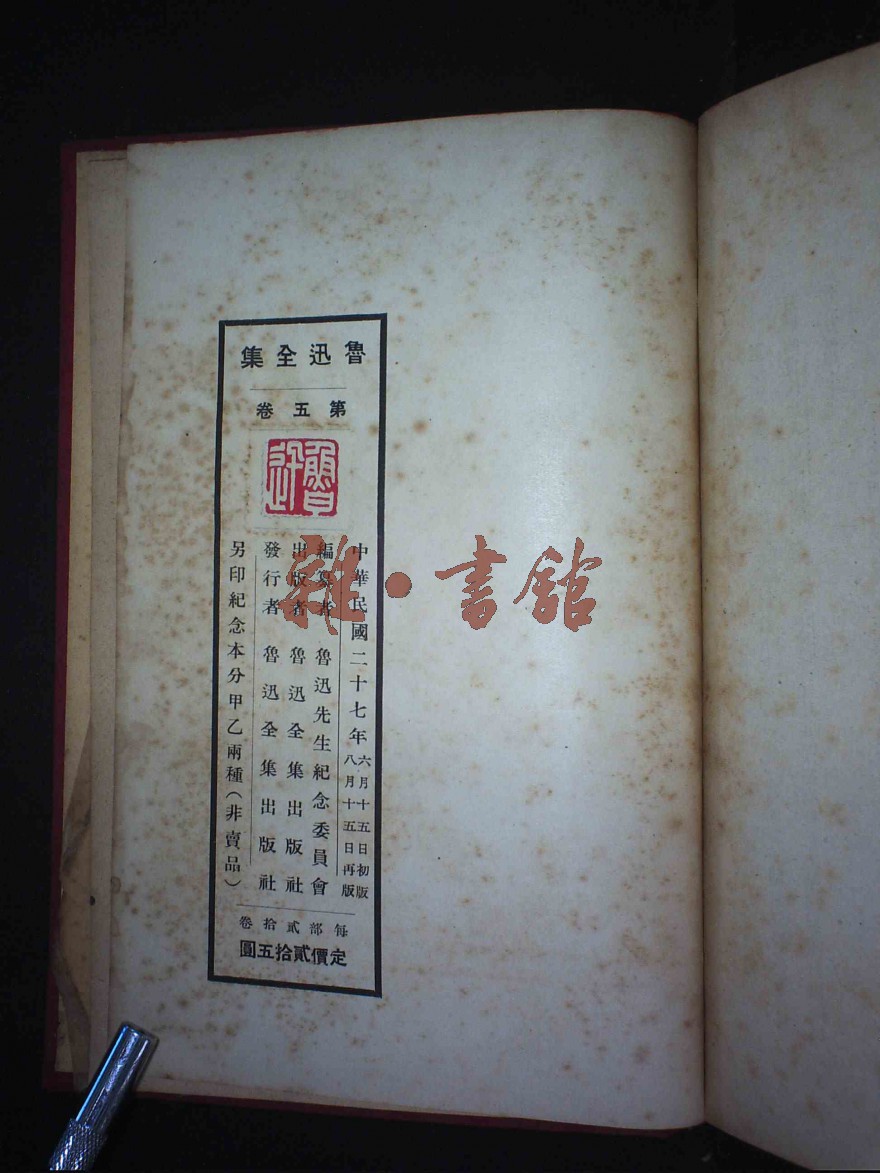 魯迅全集
第五卷
魯迅
中華民國二十七年六月十五日初版
八月十五日再版
編纂者 魯迅先生紀念委員會
出版者 魯迅全集出版社
發行者 魯迅全集出版社
另印紀念本分甲乙兩種（非賣品）
每部貳拾卷
定價貳拾五圓
雜·書館